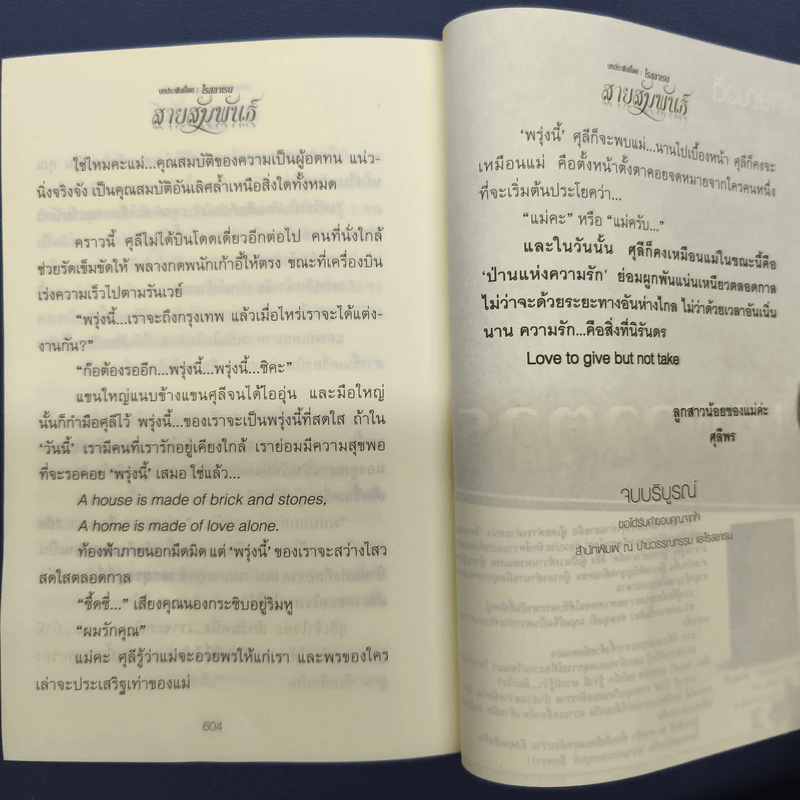 บทประพันธ์โดย : โรสลาเรน
สายสัมพันธ์
ใช่ไหมคะแม่...คุณสมบัติของความเป็นผู้อดทน แน่ว-
นิ่งจริงจัง เป็นคุณสมบัติอันเลิศล้ำเหนือสิ่งใดทั้งหมด
คราวนี้ ศุลีไม่ได้บินโดดเดี่ยวอีกต่อไป คนที่นั่งใกล้
ช่วยรัดเข็มขัดให้ พลางกดพนักเก้าอี้ให้ตรง ขณะที่เครื่องบิน
เร่งความเร็วไปตามรันเวย์
“พรุ่งนี้...เราจะถึงกรุงเทพ แล้วเมื่อไหร่เราจะได้แต่ง-
งานกัน?”
“ก้อต้องรออีก...พรุ่งนี้...พรุ่งนี้...ซิคะ”
แขนใหญ่แนบข้างแขนศุลีจนได้ไออุ่น และมือใหญ่
นั้นก็กำมือศุลีไว้ พรุ่งนี้...ของเราจะเป็นพรุ่งนี้ที่สดใส ถ้าใน
‘วันนี้’ เรามีคนที่เรารักอยู่เคียงใกล้ เราย่อมมีความสุขพอ
ที่จะรอคอย ‘พรุ่งนี้’ เสมอ ใช่แล้ว...
A house is made of brick and stones,
A home is made of love alone.
ท้องฟ้าภายนอกมืดมิด แต่ ‘พรุ่งนี้’ ของเราจะสว่างไสว
สดใสตลอดกาล
“ซี้ดซี่...” เสียงคุณนองกระซิบอยู่ริมหู
“ผมรักคุณ”
แม่คะ ศุลีรู้ว่าแม่จะอวยพรให้แก่เรา และพรของใคร
เล่าจะประเสริฐเท่าของแม่
604
บทประพันธ์โดย : โรสลาเรน
สายสัมพันธ์
‘พรุ่งนี้’ ศุลีก็จะพบแม่...นานไปเบื้องหน้า ศุลีก็คงจะ
เหมือนแม่ คือตั้งหน้าตั้งตาคอยจดหมายจากใครคนหนึ่ง
ที่จะเริ่มต้นประโยคว่า...
“แม่คะ” หรือ “แม่ครับ...”
และในวันนั้น ศุลีก็คงเหมือนแม่ในขณะนี้คือ
‘ป่านแห่งความรัก’ ย่อมผูกพันแน่นเหนียวตลอดกาล
ไม่ว่าจะด้วยระยะทางอันห่างไกล ไม่ว่าด้วยเวลาอันเนิ่น
นาน ความรัก...คือสิ่งที่นิรันดร
Love to give but not take
ลูกสาวน้อยของแม่ค่ะ
ศุลีพร
จบบริบูรณ์
ขอได้รับคำขอบคุณจากใจ
สำนักพิมพ์ ณ บ้านวรรณกรรม และโรสลาเรน